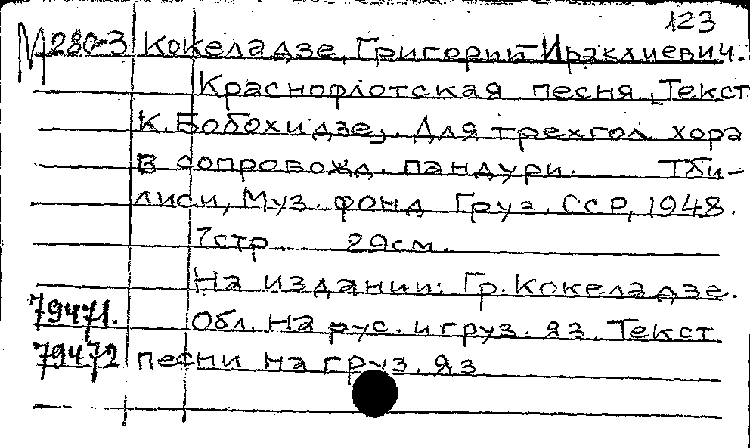 123
М280-3 Кокеладзе, Григорий Ираклиевич.
Краснофлотская песня. Текст
К. Бобохидзе, Для трехгол хора
в сопровожд. пандури. Тби-
лиси, Муз. фонд Груз. ССР, 1948.
7стр. 29см.
На издании: Гр. Кокеладзе.
79471. Обл. на рус. и груз. яз. Текст
79472 песни на груз. яз